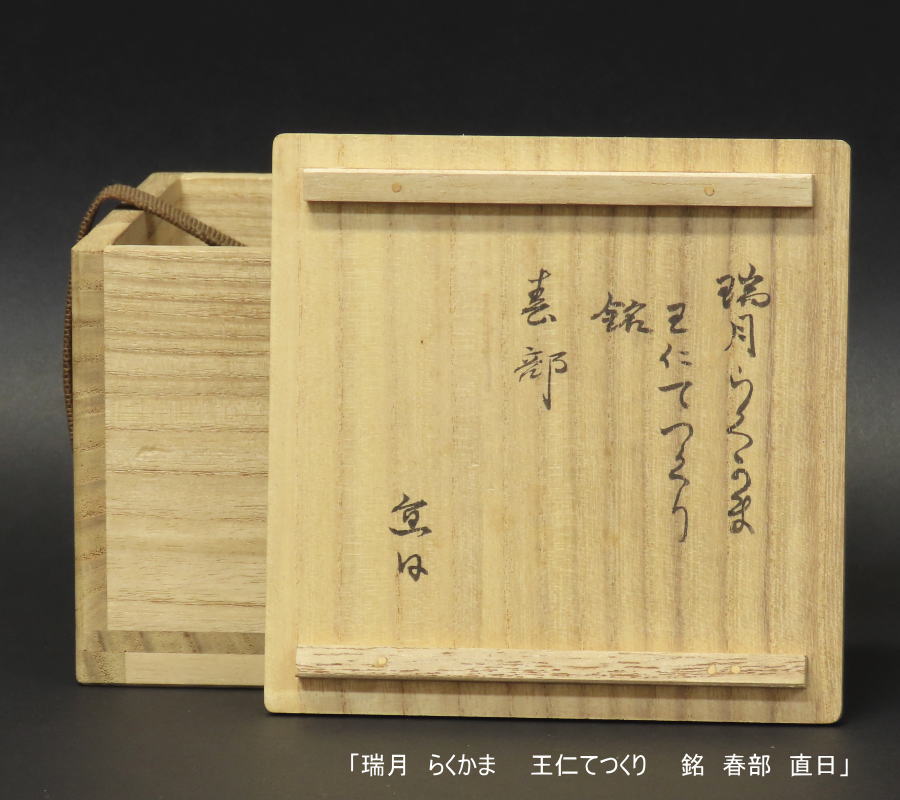 瑞月らくかま
王仁てつくり
銘
春部
直日
「瑞月　らくかま　　王仁てつくり　　銘　春部　直日」